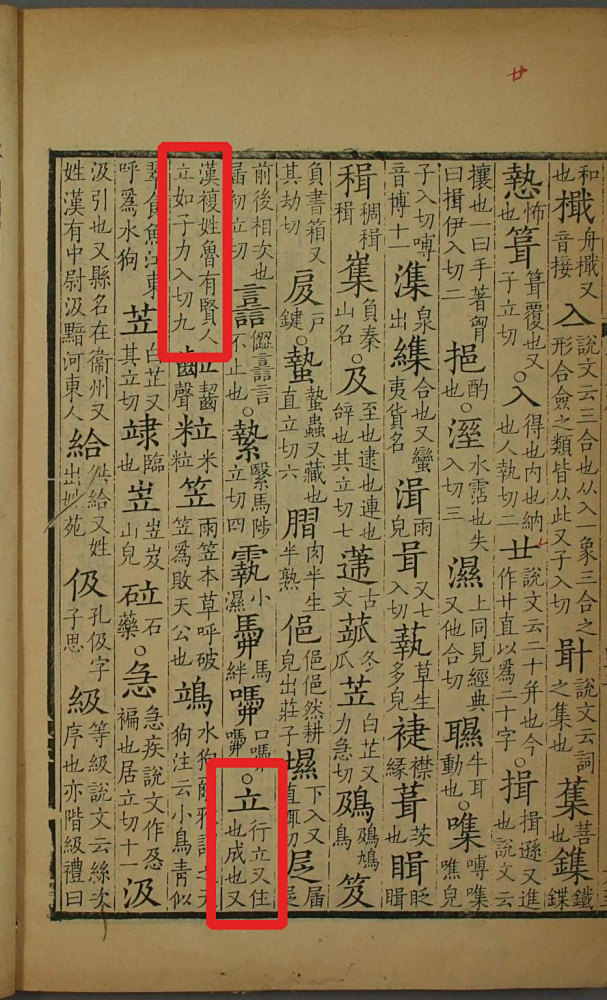 廿
和也檝舟檝又音接亼說文云三合也从入一象三合之形合僉之類皆从此又子入切卙說文云詞之集也菩鏶鐵鍱
慹怖也䈙䈙覆也又子立切○入得也內也納也人執切二廿說文云二十并也今作廿直以爲二十字○揖揖遜又進也說文云
攘也一曰手著胷曰揖伊入切二挹酌也○溼水霑也失入切三濕上同見經典又他合切牛耳動也○噍皃
子入切噂音博十一潗泉出合也又蠻夷貨名湒雨皃咠又七入切蓻草生多皃襟緣葺茨也眨
負秦山名○及至也逮也連也辝也其立切七古文冬瓜苙白芷又力急切鵖鳥笈
負書箱又其劫切戶鍵○蟄蟄蟲又藏也直立切六肉半生半熟俋俋俋然耕皃出莊子下入又直輒切
前後相次也初立切言不止也○縶繫馬陟立切四小濕馽馬絆○立行立又住也成也又
漢複姓魯有賢人立如子力入切九齧聲粒米粒笠雨笠本草呼破笠爲敗天公也鴗水狗爾雅謂之天狗注云小鳥青似
翠食魚江東呼爲水狗苙白芷又其立切臨也岦岦岌山皃砬石藥○急急疾說文作㤂褊也居立切十一汲
汲引也又縣名在衞州又姓漢有中尉汲黯河東人給供給又姓出姓苑伋孔伋字子思級等級說文云絲次序也亦階級禮曰